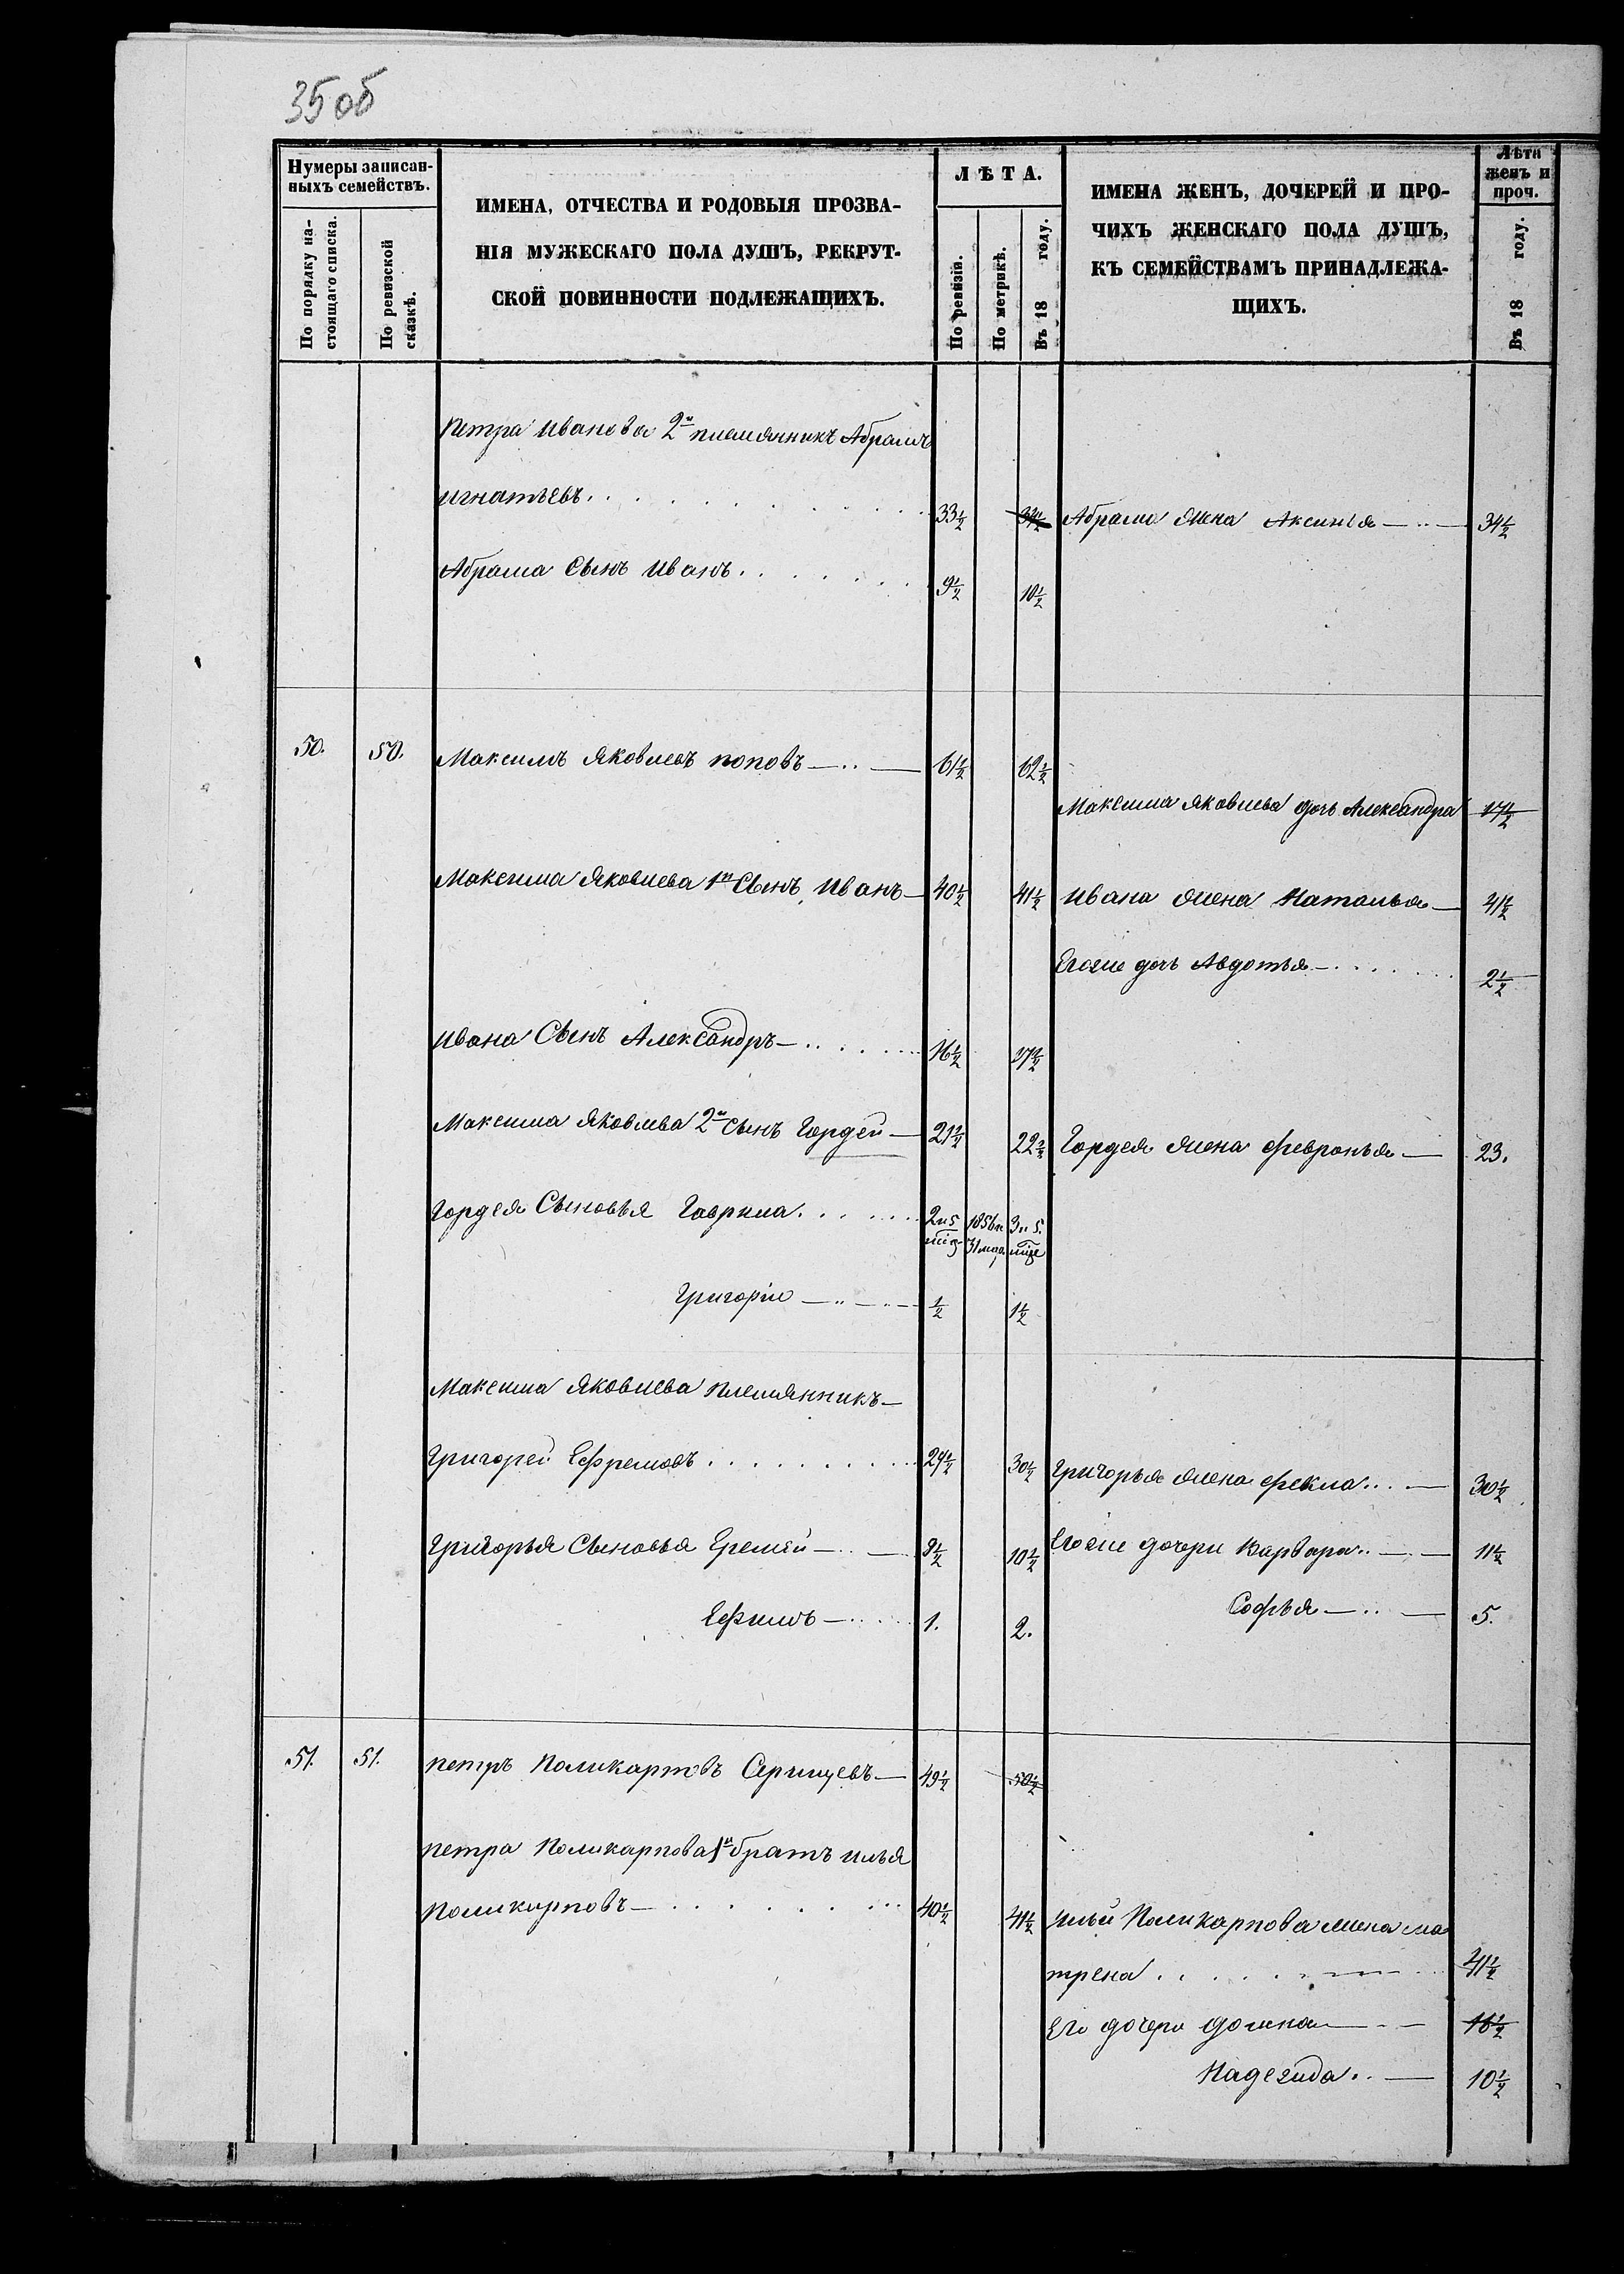 35об
Нумеры записан-
ныхъ семействъ.
По порядку на-
стоящаго списка.
По ревизской
сказкѣ.
ИМЕНА, ОТЧЕСТВА И РОДОВЫЯ ПРОЗВА-
НІЯ МУЖЕСКАГО ПОЛА ДУШЪ, РЕКРУТ-
СКОЙ ПОВИННОСТИ ПОДЛЕЖАЩИХЪ.
ЛѢТА.
По ревизіи.
По метрикѣ.
Въ 18 году.
ИМЕНА ЖЕНЪ, ДОЧЕРЕЙ И ПРО-
ЧИХЪ ЖЕНСКАГО ПОЛА ДУШЪ,
КЪ СЕМЕЙСТВАМЪ ПРИНАДЛЕЖА-
ЩИХЪ.
Лѣта
женъ и
проч.
Въ 18 году.
Петра Иванова 2й племянникъ Абрамъ
Игнатьевъ 33½ 34½ Абрама жена Аксинья 34½
Абрама Сынъ Иванъ 9½ 10½
50. 50. Максимъ Яковлевъ Поповъ 61½ 62½
Максима Яковлева дочь Александра 17½
Максима Яковлева 1й Сынъ Иванъ 40½ 41½ Ивана жена Наталья 41½
Егоже дочь Авдотья 2½
Ивана Сынъ Александръ 16½ 17½
Максима Яковлева 2й Сынъ Гордей 21½ 22½ Гордея жена Февронья 23.
Гордея Сыновья Гаврила 2и5 1856 3и5.
31
Григорій ½ 1½
Максима Яковлева племянникъ
Григорей Ефремовъ 29½ 30½ Григорья жена Фекла 30½
Григорья Сыновья Еремѣй 9½ 10½ Егоже дочери Варвара 11½
Ефимъ 1. 2. Софья 5.
51. 51. Петръ Поликарповъ 49½ 50½
Петра Поликарпова 1й братъ Илья
Поликарповъ 40½ 41½ Ильи Поликарпова жена Ма
трена 41½
Его дочери Домна 16½
Надежда 10½